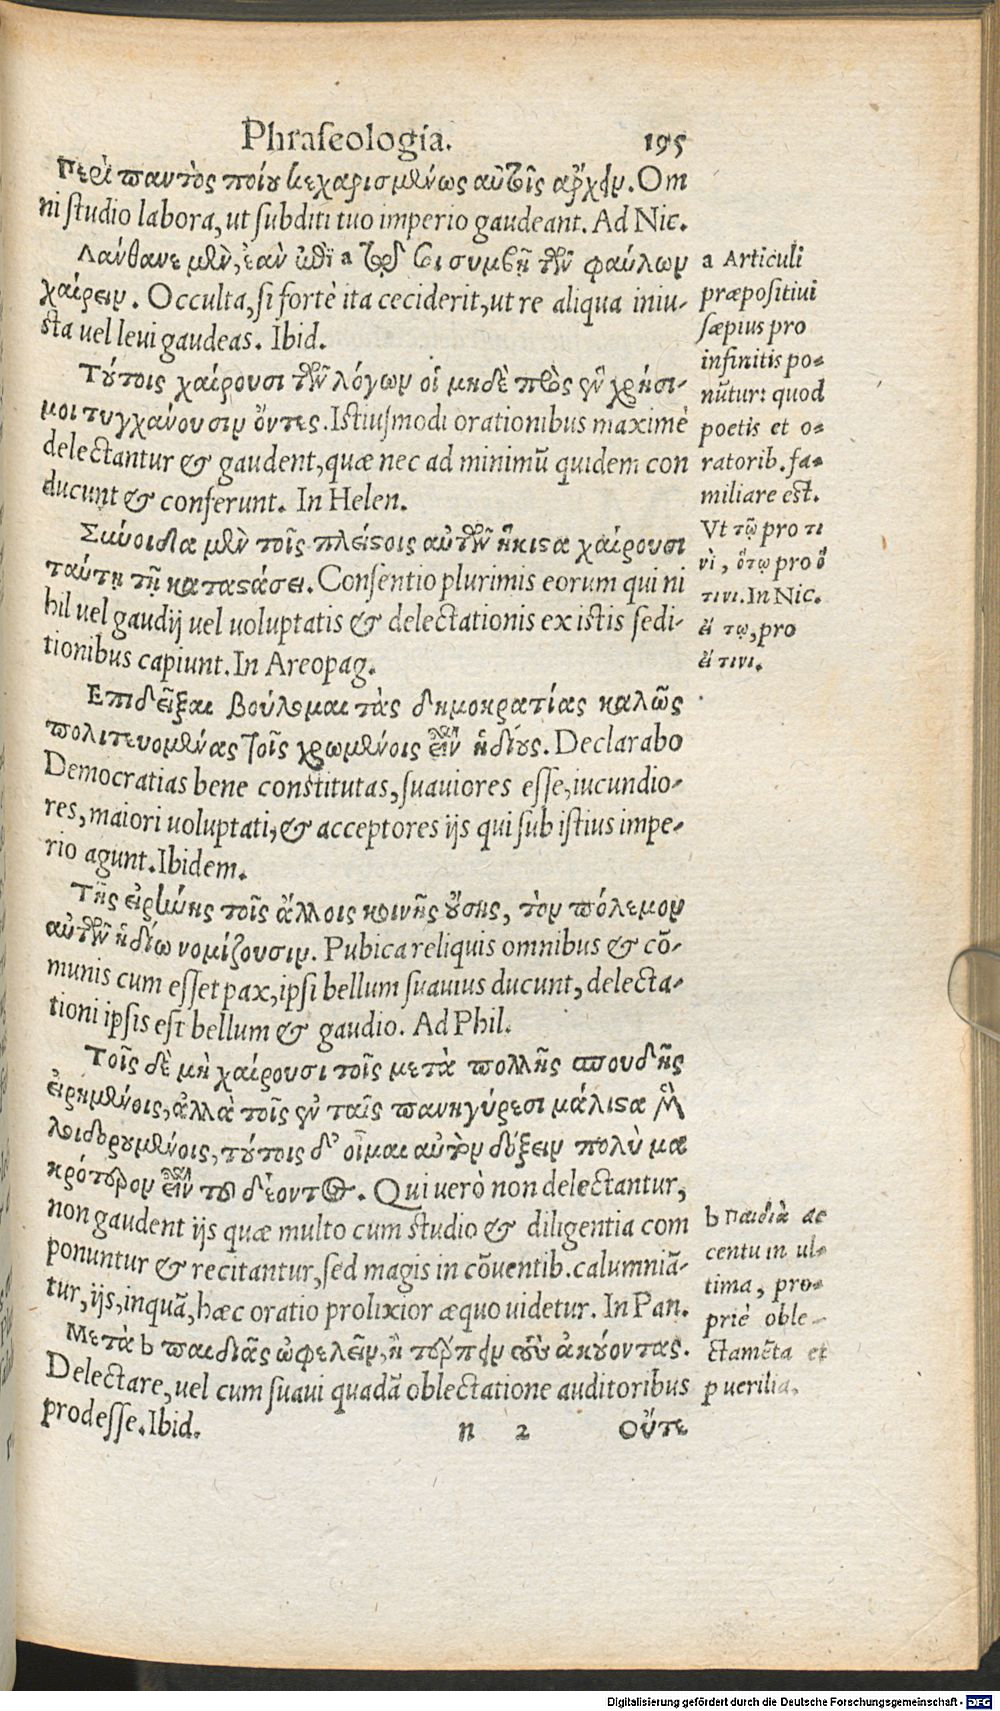 Phraſeologia. 195
Περὶ παντὸς ποίου κεχαρισμένως αὐτοῖς ἄρχειν. Om
ni ſtudio labora, ut ſubditi tuo imperio gaudeant. Ad Nic.
Λάνθανε μὲν, ἐὰν ἐπί a τῳ σοι συμβῇ τῶν φαύλων
χαίρειν. Occulta, ſi fortè ita ceciderit, ut re aliqua iniu-
sta uel leui gaudeas. Ibid.
Τούτοις χαίρουσι τῶν λόγων οἱ μηδὲ πρὸς ἓν χρήσι-
μοι τυγχάνουσιν ὄντες. Istiuſmodi orationibus maximè
delectantur & gaudent, quæ nec ad minimū quidem con
ducunt & conferunt. In Helen.
Σύνοιδα μὲν τοῖς πλείστοις αὐτῶν ἥκιστα χαίρουσι
ταύτῃ τῇ καταστάσει. Conſentio plurimis eorum qui ni
hil uel gaudij uel uoluptatis & delectationis ex istis ſedi-
tionibus capiunt. In Areopag.
Επιδεῖξαι βούλομαι τὰς δημοκρατίας καλῶς
πολιτευομένας τοῖς χρωμένοις εἶναι ἡδίους. Declarabo
Democratias bene constitutas, ſuauiores eſſe, iucundio-
res, maiori uoluptati, & acceptores ijs qui ſub istius impe-
rio agunt. Ibidem.
Τῆς εἰρήνης τοῖς ἄλλοις κοινῆς οὔσης, τὸν πόλεμον
αὐτῶν ἡδίω νομίζουσιν. Pubica reliquis omnibus & cō-
munis cum eſſet pax, ipſi bellum ſuauius ducunt, delecta-
tioni ipſis est bellum & gaudio. Ad Phil.
Τοῖς δὲ μὴ χαίρουσι τοῖς μετὰ πολλῆς σπουδῆς
εἰρημένοις, ἀλλὰ τοῖς ἐν ταῖς πανηγύρεσι μάλιστα
λοιδορουμένοις, τούτοις δ' οἶμαι αὐτὸν δόξειν πολὺ μα
κρότερον εἶναι τοῦ δέοντος. Qui uerò non delectantur,
non gaudent ijs quæ multo cum studio & diligentia com
ponuntur & recitantur, ſed magis in cōuentib. calumniā-
tur, ijs, inquā, hæc oratio prolixior æquo uidetur. In Pan.
Μετὰ b παιδιᾶς ὠφελεῖν, ἢ τέρπειν τοὺς ἀκούοντας.
Delectare, uel cum ſuaui quadā oblectatione auditoribus
prodeſſe. Ibid.
n 2 Οὔτε
a Articuli
præpoſitiui
ſæpius pro
infinitis po-
nūtur: quod
poetis et o-
ratorib. fa-
miliare est.
Vt τῷ pro τι
νὶ, ὅτῳ pro ᾧ
τινι. In Nic.
εἴ τῳ, pro
εἴ τινι.
b Παιδιὰ ac
centu in ul-
tima, pro-
priè oble-
ctamēta et
puerilia,
Digitalisierung gefördert durch die Deutsche Forschungsgemeinschaft - DFG